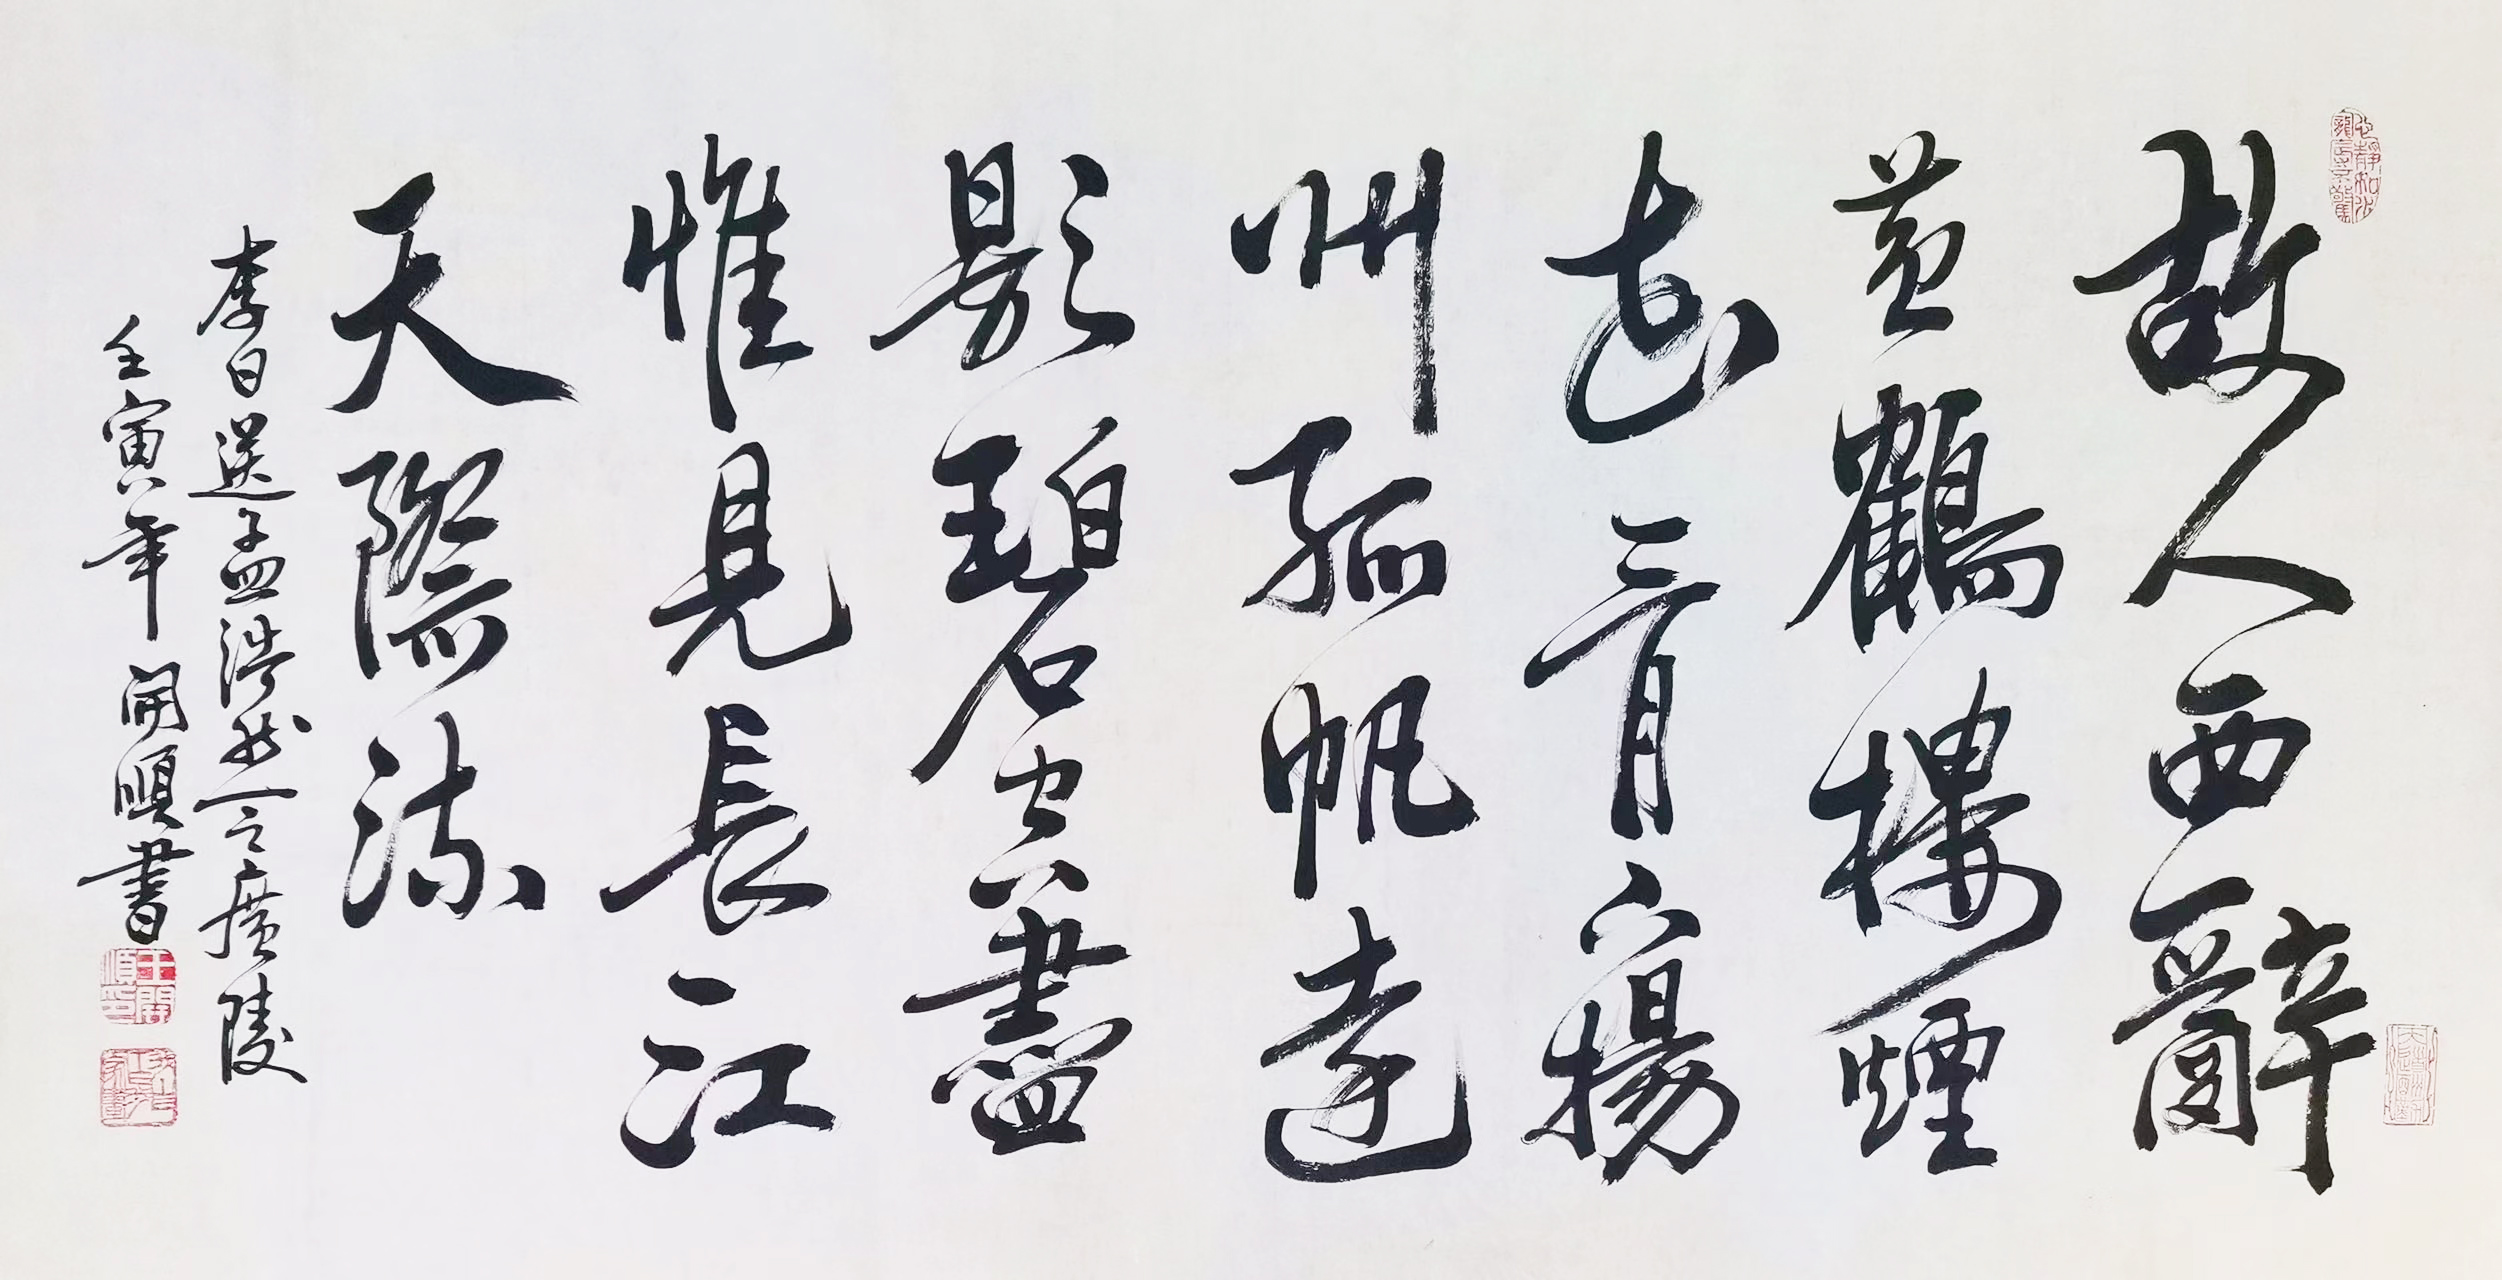 心靜如水
故人西辭
黄鶴樓煙
花三月下揚
州孤帆遠
影碧空盡
惟見長江
天際流
李白送孟浩然之廣陵
壬寅年開順書
王開順印